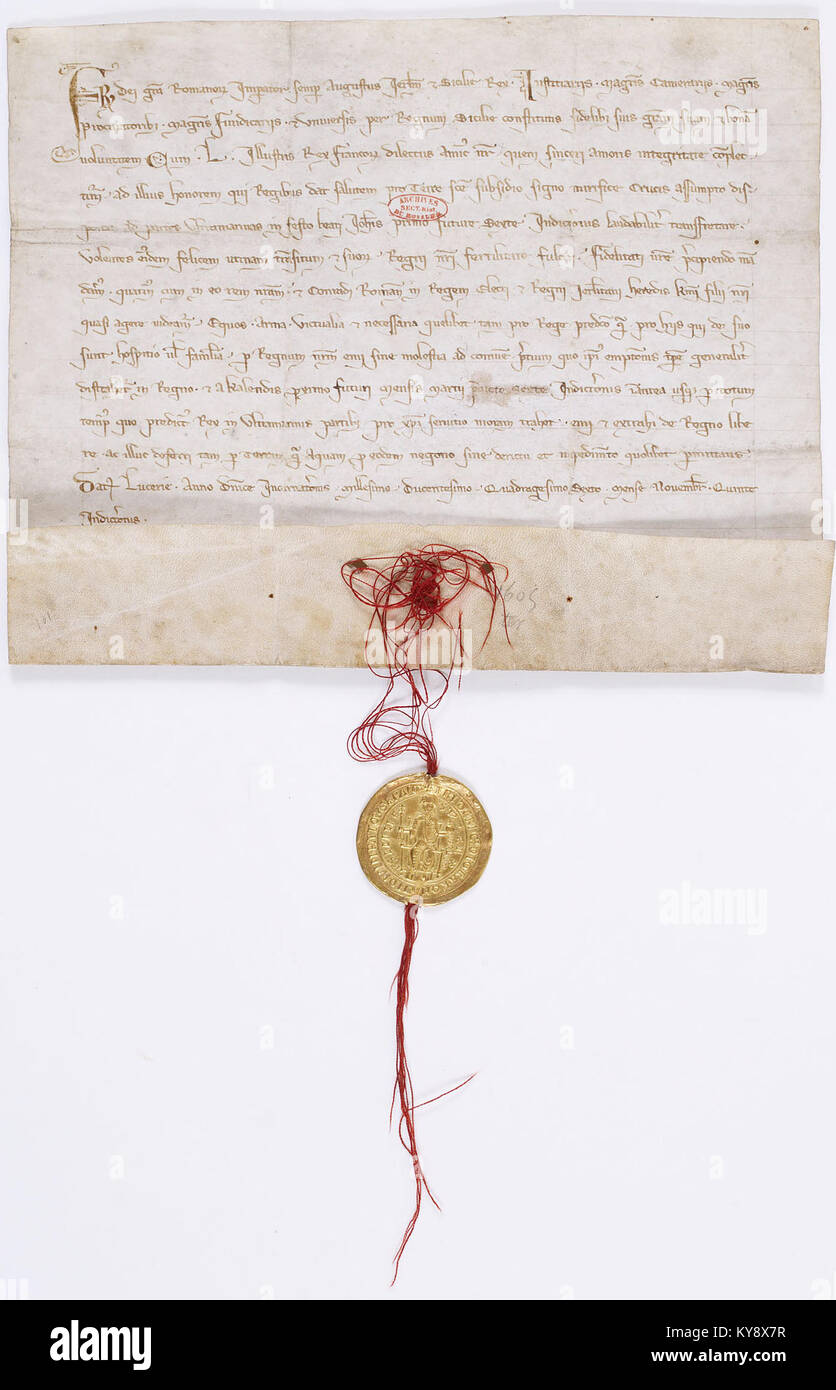 Fr. Dei gra Romanor Imperator semp Augustus Jerlm & Sicilie Rex. Justitiariis. Magris Camerariis. Magris
procuratoribz. Magris fundicariis. & Universis per Regnum Sicilie constitutis fidelibz suis gram suam & bona
voluntatem Cum. L. Illustris Rex Francor dilectus amic nr. quem sinceri amoris integritate complec
timr. ad illius honorem qui Regibus dat salutem pro Terre sce subsidio signo mirifice Crucis assumpto dis
ponat ad partes Ultramarinas in festo beati Johis primo future Sexte Indictionis laudabilit transfretare.
Volentes eidem felicem transitum & suor Regni nri fertilitate fulciri. Fidelitati vre precipiendo man
dam. quatin cum in eo rem nram. & Conradi Roman in Regem Electi & Regni Jerlmitani heredis kmi filii nri
quasi agere videamr. Equos. Arma. Victualia & necessaria quelibet tam pro Rege predco q pro hiis qui de suo
sunt hospitio ul familia. p Regnum nrm emi sine molestia ad comune ptium quo ipi emptionis tpe generalit
distrahet in Regno. & a kalendis primo futuri mensis martii Indictionis in antea usq p totum
temp quo predict Rex in Ultramarinis partibz pro xpi servitio moram trahet. emi & extrahi de Regno libe
re ac illuc deferri tam p Terram q Aquam p eodem negotio sine dirictu et impedimto quolibet permittatis
Dat Lucerie. Anno Dnice Incarnationis. Millesimo. Ducentesimo. Quadragesimo Sexto. Mense Novembr. Quinte
Indictionis.
ARCHIVES
SECT. HIST.
DU ROYAUME
1605
ter
alamy
alamy
Image ID: KY8X7R
www.alamy.com